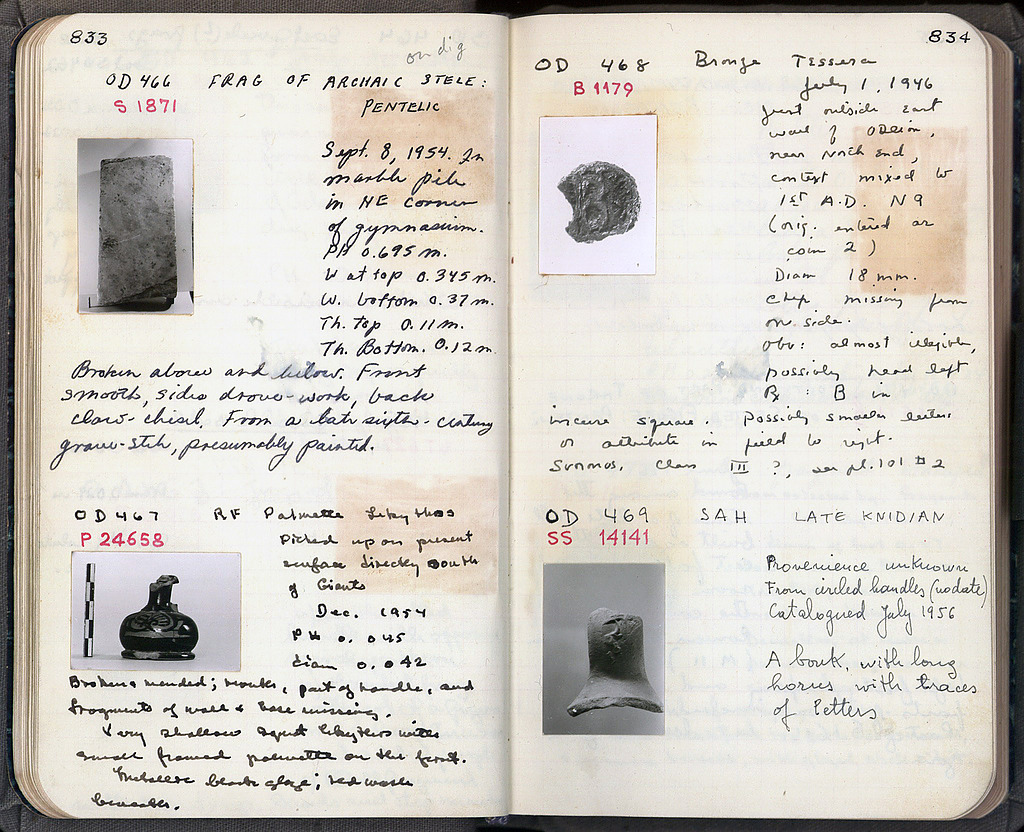 833
on dig
OD 466 FRAG OF ARCHAIC STELE:
S 1871 PENTELIC
Sept. 8, 1954. In
marble pile
in NE corner
of gymnasium.
PH 0.695 m.
W at top 0.345 m.
W. bottom 0.37 m.
Th. top 0.11 m.
Th. Bottom. 0.12 m
Broken above and below. Front
smooth, sides drove-work, back
claw-chisel. From a late sixth-century
grave-stele, presumably painted.
OD 467 RF Palmette Lekythos
P 24658
Picked up on present
surface directly south
of Giants
Dec. 1954
PH 0.045
diam 0.042
Broken & mended; mouth, part of handle, and
fragments of wall & base missing.
Very shallow squat lekythos with
small framed palmette on the front.
Metallic black glaze; red wash
beneath.
834
OD 468 Bronze Tessera
B 1179
July 1, 1946
Just outside east
wall of Odeion,
near North End,
context mixed to
1st A.D. N 9
(orig. entered as
coin 2)
Diam 18 mm.
Chip missing from
one side.
Obv: almost illegible,
possibly head left
Rx: B in
incuse square. Possibly smaller letters
or attribute in field to right.
Svoronos, Class III ?, see pl. 101 # 2
OD 469 SAH LATE KNIDIAN
SS 14141
Provenience unknown
From circled handles (no date)
Catalogued July 1956
A bouk. with long
horns with traces
of letters